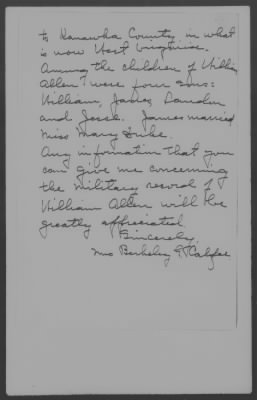 to Kanawha County in what
is now West Virginia.
Among the children of William
Allen were four sons:
William, James, Landon
and Jesse. James married
Miss Mary
Any information that you
can give me concerning
the military record of
William Allen will be
greatly appreciated.
Sincerely,
Mrs Berkeley